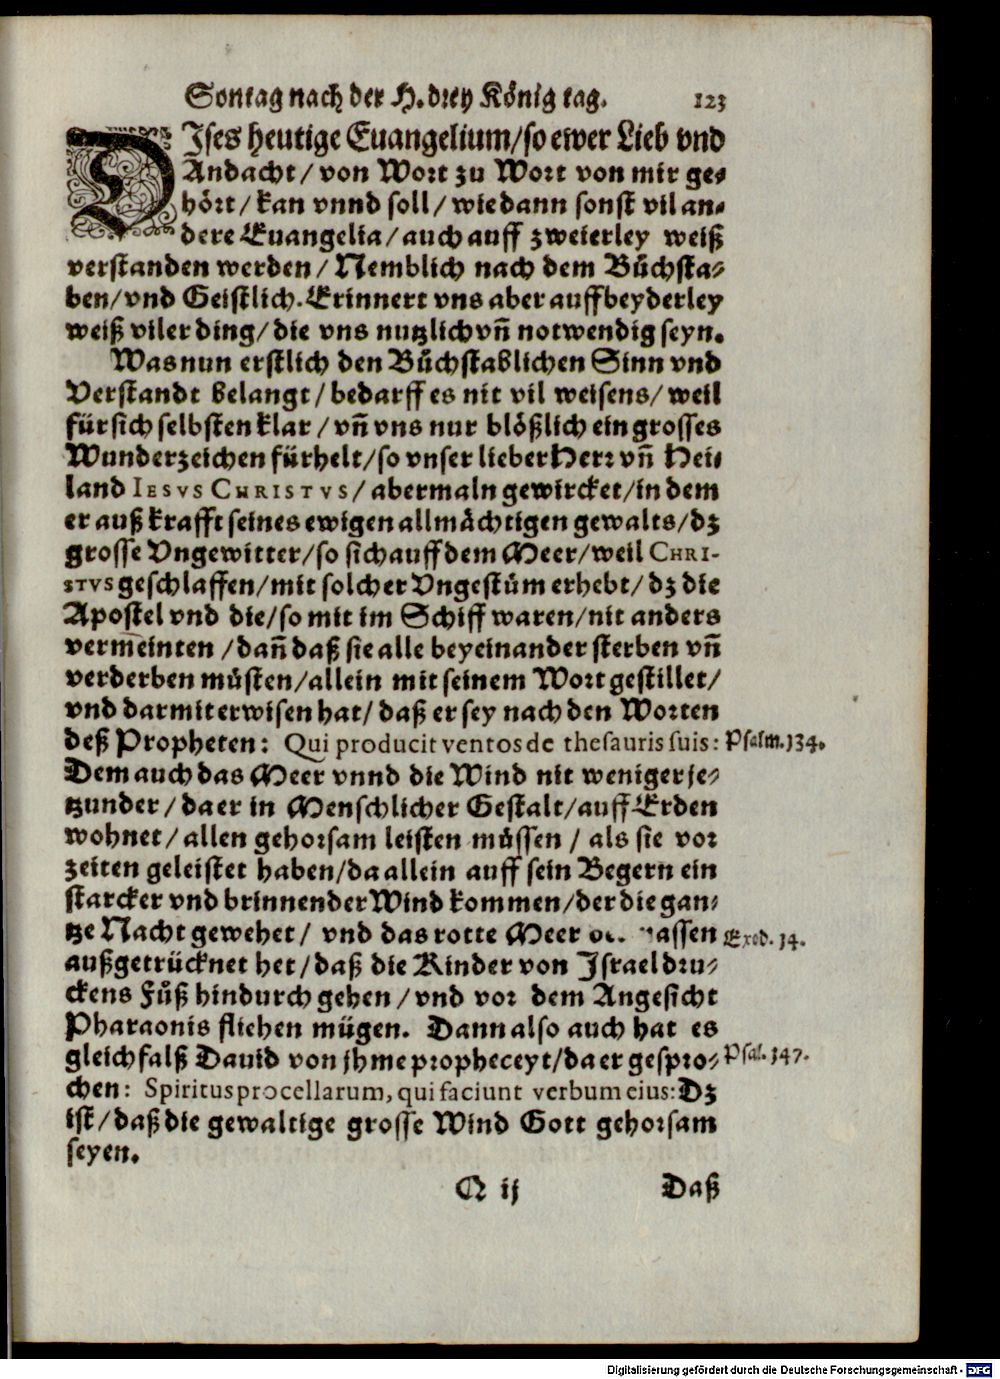 Sontag nach der H. drey König tag. 123
DIses heutige Euangelium/so ewer Lieb vnd
Andacht/von Wort zu Wort von mir ge-
hört/kan vnnd soll/wie dann sonst vil an-
dere Euangelia/auch auff zweierley weiß
verstanden werden/Nemblich nach dem Bůchsta-
ben/vnd Geistlich. Erinnert vns aber auff beyderley
weiß viler ding/die vns nutzlich vñ notwendig seyn.
Was nun erstlich den Bůchstablichen Sinn vnd
Verstandt belangt/bedarff es nit vil weisens/weil
für sich selbsten klar/vñ vns nur blößlich ein grosses
Wunderzeichen fürhelt/so vnser lieber Herr vñ Hei-
land IESVS CHRISTVS/abermaln gewircket/in dem
er auß krafft seines ewigen allmächtigen gewalts/dz
grosse Vngewitter/so sich auff dem Meer/weil CHRI-
STVS geschlaffen/mit solcher Vngestüm erhebt/dz die
Apostel vnd die/so mit im Schiff waren/nit anders
vermeinten/dañ daß sie alle beyeinander sterben vñ
verderben müsten/allein mit seinem Wort gestillet/
vnd darmit erwisen hat/daß er sey nach den Worten
deß Propheten: Qui producit ventos de thesauris suis: Psalm. 134.
Dem auch das Meer vnnd die Wind nit weniger je-
tzunder/da er in Menschlicher Gestalt/auff Erden
wohnet/allen gehorsam leisten müssen/als sie vor
zeiten geleistet haben/da allein auff sein Begern ein
starcker vnd brinnender Wind kommen/der die gan-
tze Nacht gewehet/vnd das rotte Meer Exod. 14.
außgetrücknet het/daß die Kinder von Israel dru-
ckens Fůß hindurch gehen/vnd vor dem Angesicht
Pharaonis fliehen mügen. Dann also auch hat es
gleichfalß Dauid von jhme propheceyt/da er gespro- Psal. 147.
chen: Spiritus procellarum, qui faciunt verbum eius: Dz
ist/daß die gewaltige grosse Wind Gott gehorsam
seyen.
Q ij Daß
Digitalisierung gefördert durch die Deutsche Forschungsgemeinschaft - DFG